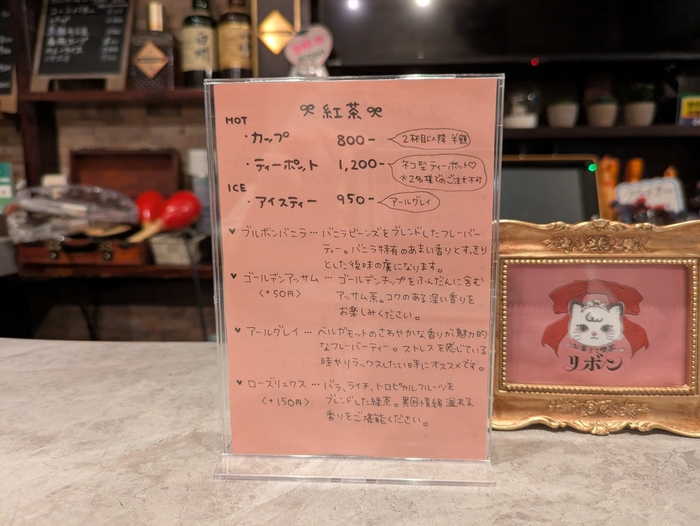 紅茶
HOT
・カップ 800- 2杯目以降 半額
・ティーポット 1,200- ネコ型ティーポット♡
※2名様でのご注文不可
ICE
・アイスティー 950- アールグレイ
♥ ブルボンバニラ… バニラビーンズをブレンドしたフレーバー
ティー。バニラ特有のあまい香りとすっきり
とした後味の虜になります。
♥ ゴールデンアッサム … ゴールデンチップをふんだんに含む
〈+50円〉 アッサム茶。コクのある深い香りを
お楽しみください。
♥ アールグレイ … ベルガモットのさわやかな香りが魅力的
なフレーバーティー。ストレスを感じている
時やリラックスしたい時にオススメです。
♥ ローズリュクス … バラ、ライチ、トロピカルフルーツを
〈+150円〉 ブレンドした緑茶。異国情緒溢れる
香りをご堪能ください。
リボン